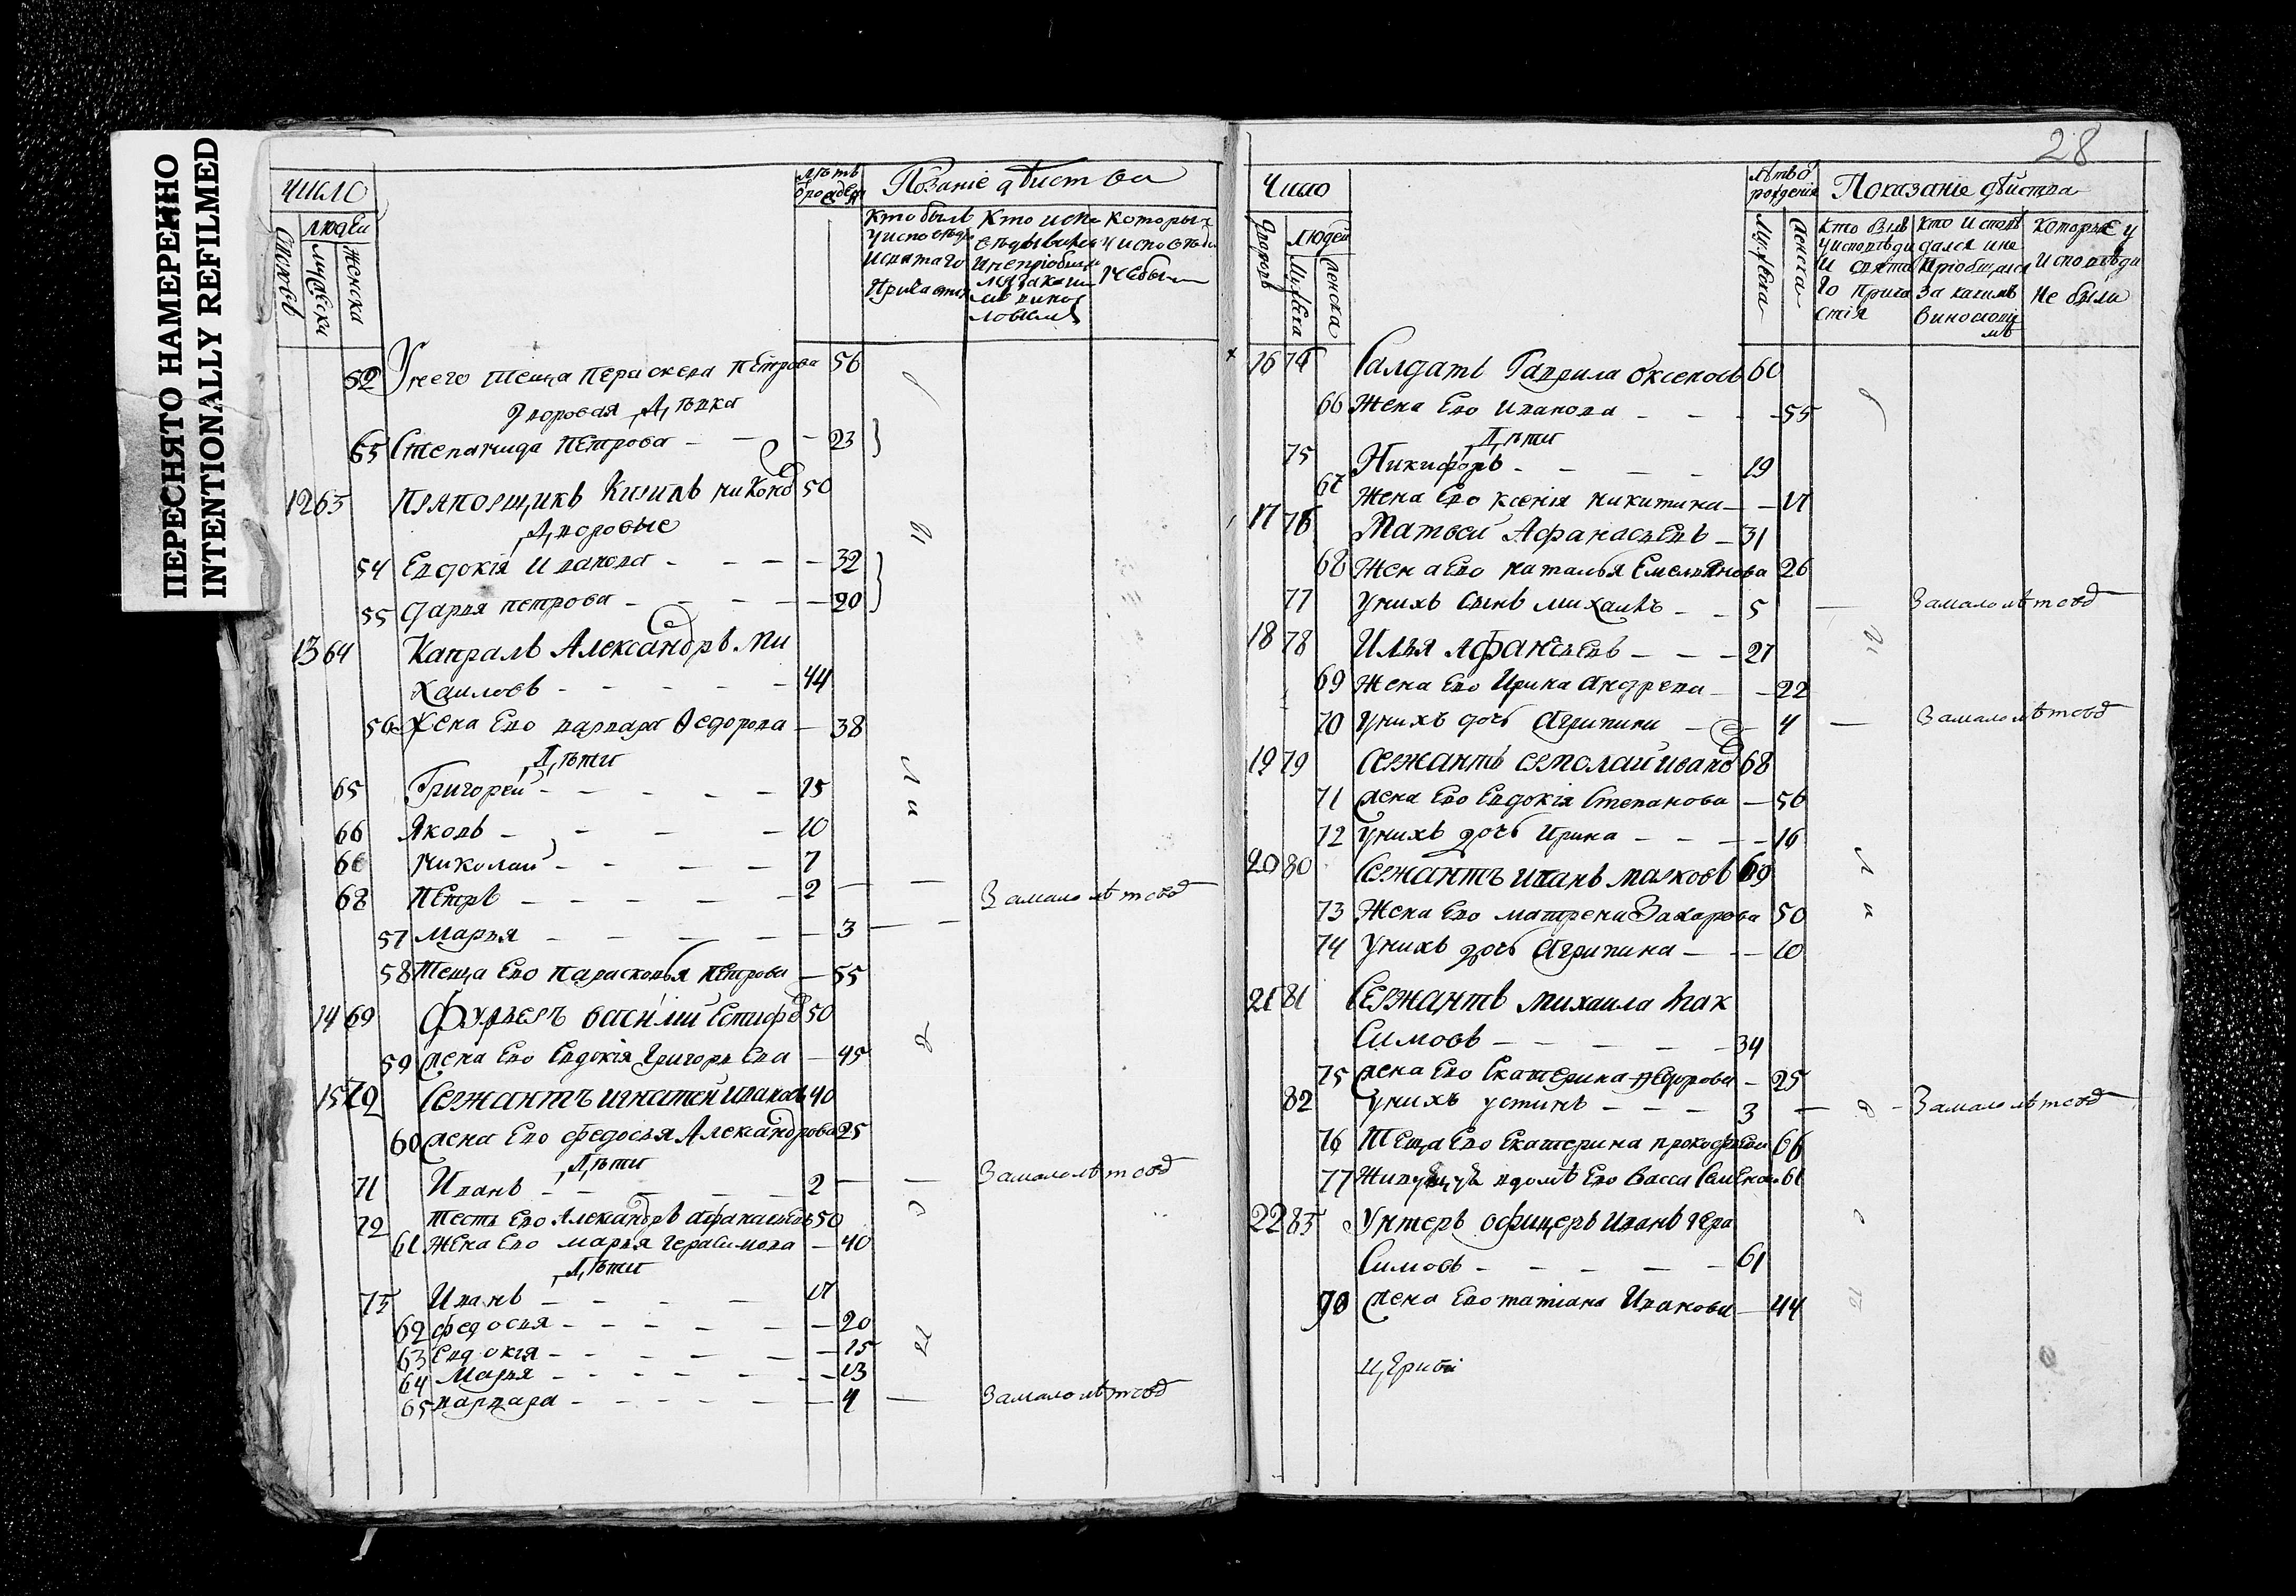 ПЕРЕСНЯТО НАМЕРЕННО
INTENTIONALLY REFILMED
число
людей
мужески
женска
лѣтъ
кто былъ
Кто испо
которы
у исповѣди
не были
52 У него теща Параскева Петрова 56
дворовая дѣвка
Степанида Петрова — 23
12 63 Прапорщикъ 50
дворовые
54 Евдокія Иванова — 32
55 дарья петрова — 20
13 64 Капралъ Александръ Ми
хаиловъ — 44
56 Жена Ево варвара Ѳедорова — 38
Дѣти
65 Григорей — 15
66 Яковъ — 10
николай — 7
68 Петръ — 2 — За малолѣтсвд
57 Марья — 3
58 Теща Ево парасковья Петрова — 55
14 69 Фурьеръ василий 50
59 жена Ево Евдокія Григорьева — 45
15 Сержантъ игнатей Иванов 40
60 жена Ево федосья Александрова 25
Дѣти
71 Иванъ — 2 — За малолѣтсвд
72 тесть Ево Александръ афанасьевъ 50
61 жена Ево марья герасимова — 40
Дѣти
73 Иванъ — 17
62 федосья — 20
63 Евдокія — 15
64 Марья — 13
65 варвара — 4 — За малолѣтсвд
28
Число
людей
Лѣтъ
рожденія
Показаніе дѣйства
Мужска
Женска
кто былъ
у исповѣди
и свята
го прича
стія
кто исповѣ
дался и не
пріобщался
за какимъ
винослові
мъ
которые у
исповѣди
не были
16 74 Салдатъ Гаврила Оксеновъ 60
66 Жена Ево иванова — 55
Дѣти
75 Никифоръ — 19
67 Жена Ево ксенія никитина — 17
17 76 Матвей Афанасьевъ — 31
68 Жена Ево наталья Емельянова 26
77 У нихъ сынъ михаилъ — 5 — За малолѣтсвд
18 78 Илья Афансьевъ — 27
69 Жена Ево Ирина андрева — 22
70 У нихъ дочь Агрипина — 4 — За малолѣтсвд
19 79 Сержантъ 68
71 жена Ево Евдокія Степанова — 56
72 У нихъ дочь Ирина — 16
20 80 Сержантъ иванъ 69
73 Жена Ево матрена Захарова 50
74 У нихъ дочь Агрипина — 10
21 81 Сержантъ михаила Мак
симовъ — 34
75 жена Ево Екатерина Ѳедорова — 25
82 У нихъ устинъ — 3 — За малолѣтсвд
76 Теща Ево Екатерина прокофьева 66
77 въ домѣ Ево Васса Семена 61
22 83 Унтеръ офицеръ Иванъ гера
симовъ — 61
жена Ево татіана Иванова — 44